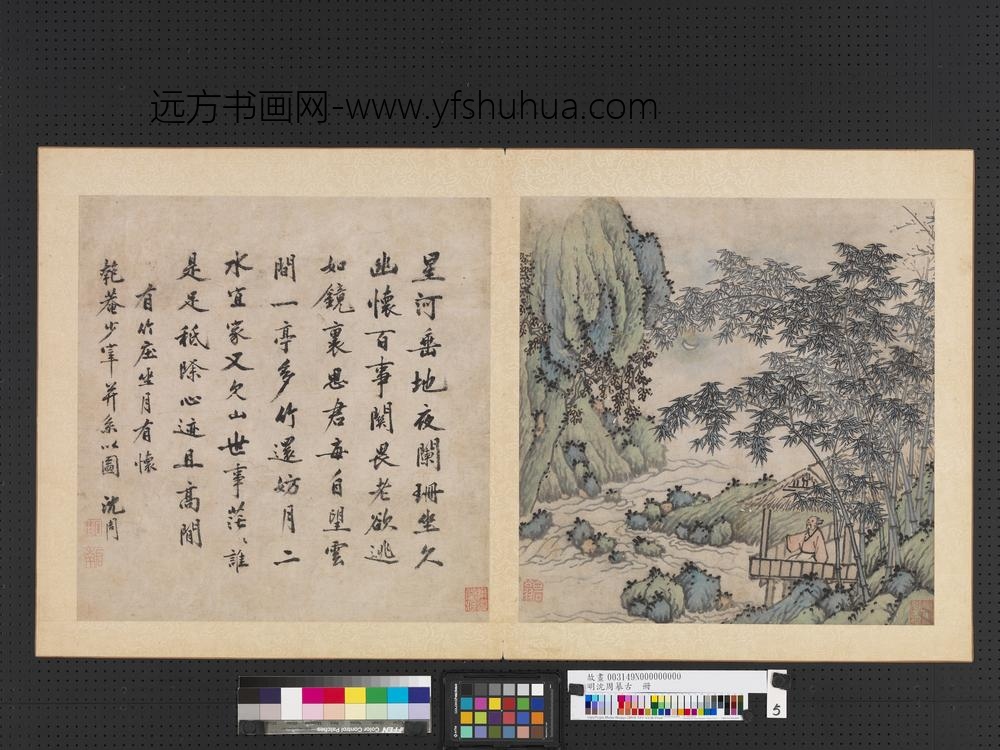 远方书画网-www.yfshuhua.com
星河垂地夜闌珊坐久
幽懷百事関畏老欲逃
如鏡裏思君每自望雲
間一亭多竹還妨月二
水宜家又欠山世事茫〻誰
是足秪除心迹且高閒
有竹庄坐月有懷
匏菴少宰并系以圖 沈周
故畫 003149N000000000
明沈周摹古 冊
5
Color Control Patches